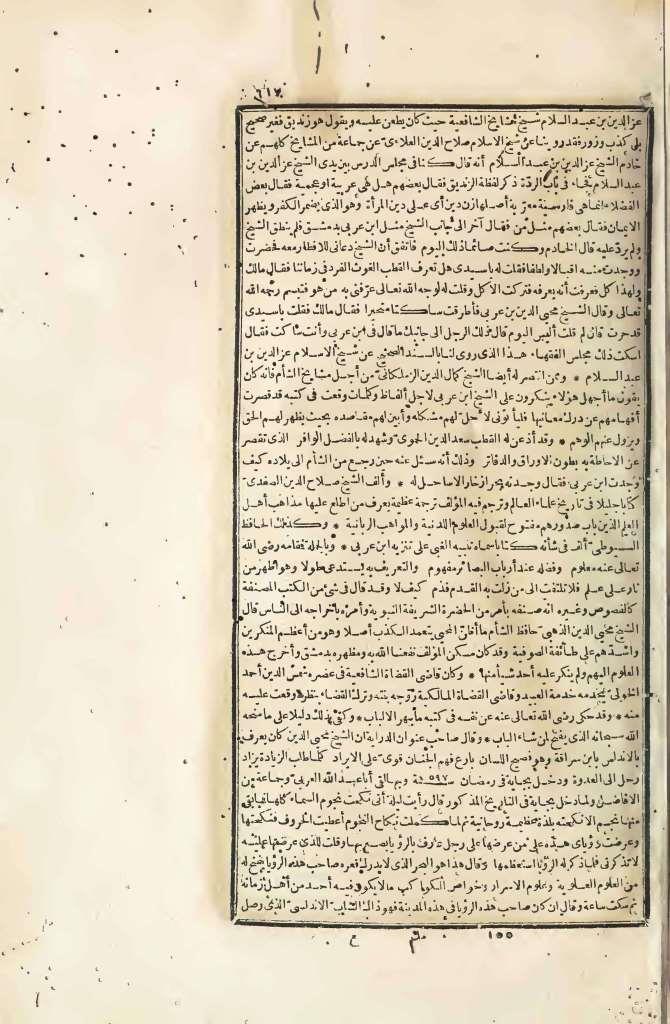 ٦١٧
عز الدين بن عبد السلام شيخ مشايخ الشافعية حيث كان يطعن عليه ويقول هو زنديق فغير صحيح
بل كذب وزور فقد روينا عن شيخ الاسلام صلاح الدين العلائي عن جماعة من المشايخ كلهم عن
خادم الشيخ عز الدين بن عبد السلام أنه قال كنا في مجلس الدرس بين يدي الشيخ عز الدين بن
عبد السلام فجاء في باب الردة ذكر لفظة الزنديق فقال بعضهم هل هي عربية او عجمية فقال بعض
الفضلاء انما هي فارسية معربة أصلها زن دين أي على دين المرأة وهو الذي يضمر الكفر ويظهر
الايمان فقال بعضهم مثل من فقال آخر الى جانب الشيخ مثل ابن عربي بدمشق فلم ينطق الشيخ
ولم يرد عليه قال الخادم وكنت صائما ذلك اليوم فاتفق أن الشيخ دعاني للافطار معه فحضرت
ووجدت منه اقبالا ولطفا فقلت له ياسيدي هل تعرف القطب الغوث الفرد في زماننا فقال مالك
ولهذا كل فعرفت أنه يعرفه فتركت الاكل وقلت له لوجه الله تعالى عرفني به من هو فتبسم رحمه الله
تعالى وقال الشيخ محيي الدين بن عربي فأطرقت ساكتا متحيرا فقال مالك فقلت ياسيدي
قد حرت قال لم قلت أليس اليوم قال ذلك الرجل الى جانبك ما قال في ابن عربي وأنت ساكت فقال
اسكت ذلك مجلس الفقهاء هذا الذي روي لنا بالسند الصحيح عن شيخ الاسلام عز الدين بن
عبد السلام * وممن انتصر له أيضا الشيخ كمال الدين الزملكاني من أجل مشايخ الشأم فانه كان
يقول ما أجهل هؤلاء ينكرون على الشيخ ابن عربي لاجل ألفاظ وكلمات وقعت في كتبه قد قصرت
أفهامهم عن درك معانيها فليأتوني لاحل لهم مشكله وأبين لهم مقاصده بحيث يظهر لهم الحق
ويزول عنهم الوهم * وقد أذعن له القطب سعد الدين الحموي وشهد له بالفضل الوافر الذي تقصر
عن الاحاطة به بطون الاوراق والدفاتر وذلك أنه سئل عنه حين رجع من الشأم الى بلاده كيف
وجدت ابن عربي فقال وجدته بحرا زخارا لا ساحل له * وألف الشيخ صلاح الدين الصفدي
كتابا جليلا في تاريخ علماء العالم وترجم فيه المؤلف ترجمة عظيمة يعرف من اطلع عليها مذاهب أهل
العلم الذين باب صدورهم مفتوح لقبول العلوم اللدنية والمواهب الربانية * وكذلك الحافظ
السيوطي ألف في شأنه كتابا سماه تنبيه الغبي على تنزيه ابن عربي * وبالجملة فمقامه رضي الله
تعالى عنه معلوم وفضله عند أرباب البصائر مفهوم والتعريف به يستدعي طولا وهو أظهر من
نار على علم فلا تلتفت الى من زلت به القدم فذم كيف لا وقد قال في شئ من الكتب المصنفة
كالفصوص وغيره انه صنفه بأمر من الحضرة الشريفة النبوية وأمره باخراجه الى الناس قال
الشيخ محيي الدين الذهبي حافظ الشأم ما أظن المحيي يتعمد الكذب أصلا وهو من أعظم المنكرين
وأشدهم على طائفة الصوفية وقد كان مسكن المؤلف نفعنا الله به ومظهره بدمشق وأخرج هذه
العلوم اليهم ولم ينكر عليه أحد شيأ منها * وكان قاضي القضاة الشافعية في عصره شمس الدين أحمد
الخولي يخدمه خدمة العبيد وقاضي القضاة المالكية زوجه بنته وترك القضاء بنظرة وقعت عليه
منه * وقد حكى رضي الله تعالى عنه عن نفسه في كتبه ما يبهر الالباب * وكفى بذلك دليلا على ما منحه
الله سبحانه الذي يفتح لمن شاء الباب * وقال صاحب عنوان الدراية ان الشيخ محيي الدين كان يعرف
بالاندلس بابن سراقة وهو فصيح اللسان بارع فهم الجنان قوي على الايراد كلما طلب الزيادة يزاد
رحل الى العدوة ودخل بجاية في رمضان سنة ٥٩٧ وبها لقي أبا عبد الله العربي وجماعة من
الافاضل ولما دخل بجاية في التاريخ المذكور قال رأيت ليلة أني نكحت نجوم السماء كلها فما بقي
منها نجم الا نكحته بلذة عظيمة روحانية ثم لما كملت نكاح النجوم أعطيت الحروف فنكحتها
وعرضت رؤياي هذه على من عرضها على رجل عارف بالرؤيا بصير بها وقلت للذي عرضتها عليه
لا تذكرني فلما ذكر له الرؤيا استعظمها وقال هذا هو البحر الذي لا يدرك قعره صاحب هذه الرؤيا يفتح له
من العلوم العلوية وعلوم الاسرار وخواص الكواكب ما لا يكون فيه أحد من أهل زمانه
ثم سكت ساعة وقال ان كان صاحب هذه الرؤيا في هذه المدينة فهو ذاك الشاب الاندلسي الذي وصل
١٥٥